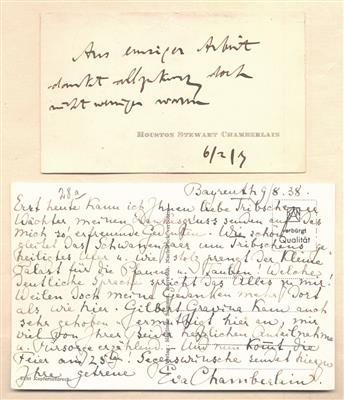 Aus einziger Arbeit
dankt allzukurz doch
nicht weniger warm
HOUSTON STEWART CHAMBERLAIN
6/2/
28a
Bayreuth 9/8.38.
Erst heute kann ich Ihnen liebe Tribschener
Wächter meinen Dankgruss senden
mich so erfreuende Gedenken. Wie schön
gleitet das Schwanenpaar um Tribschens ge-
heiligtes Ufer u. wie stolz prangt der kleine
Palast für die Pfauen u. Tauben! Welche
deutliche Sprache spricht das Alles zu mir!
Weilen doch meine Gedanken mehr dort
als wie hier. Gilbert Gravina kam auch
sehr gehoben u. ermutigt hier an, mir
viel von Ihrer beider herzlichen Anteilnahme
u. Fürsorge erzählend. Und nun kommt die
Feier am 25ten! Segenswünsche sendet hierzu
Ihre getreue Eva Chamberlain
verbürgt
Qualität